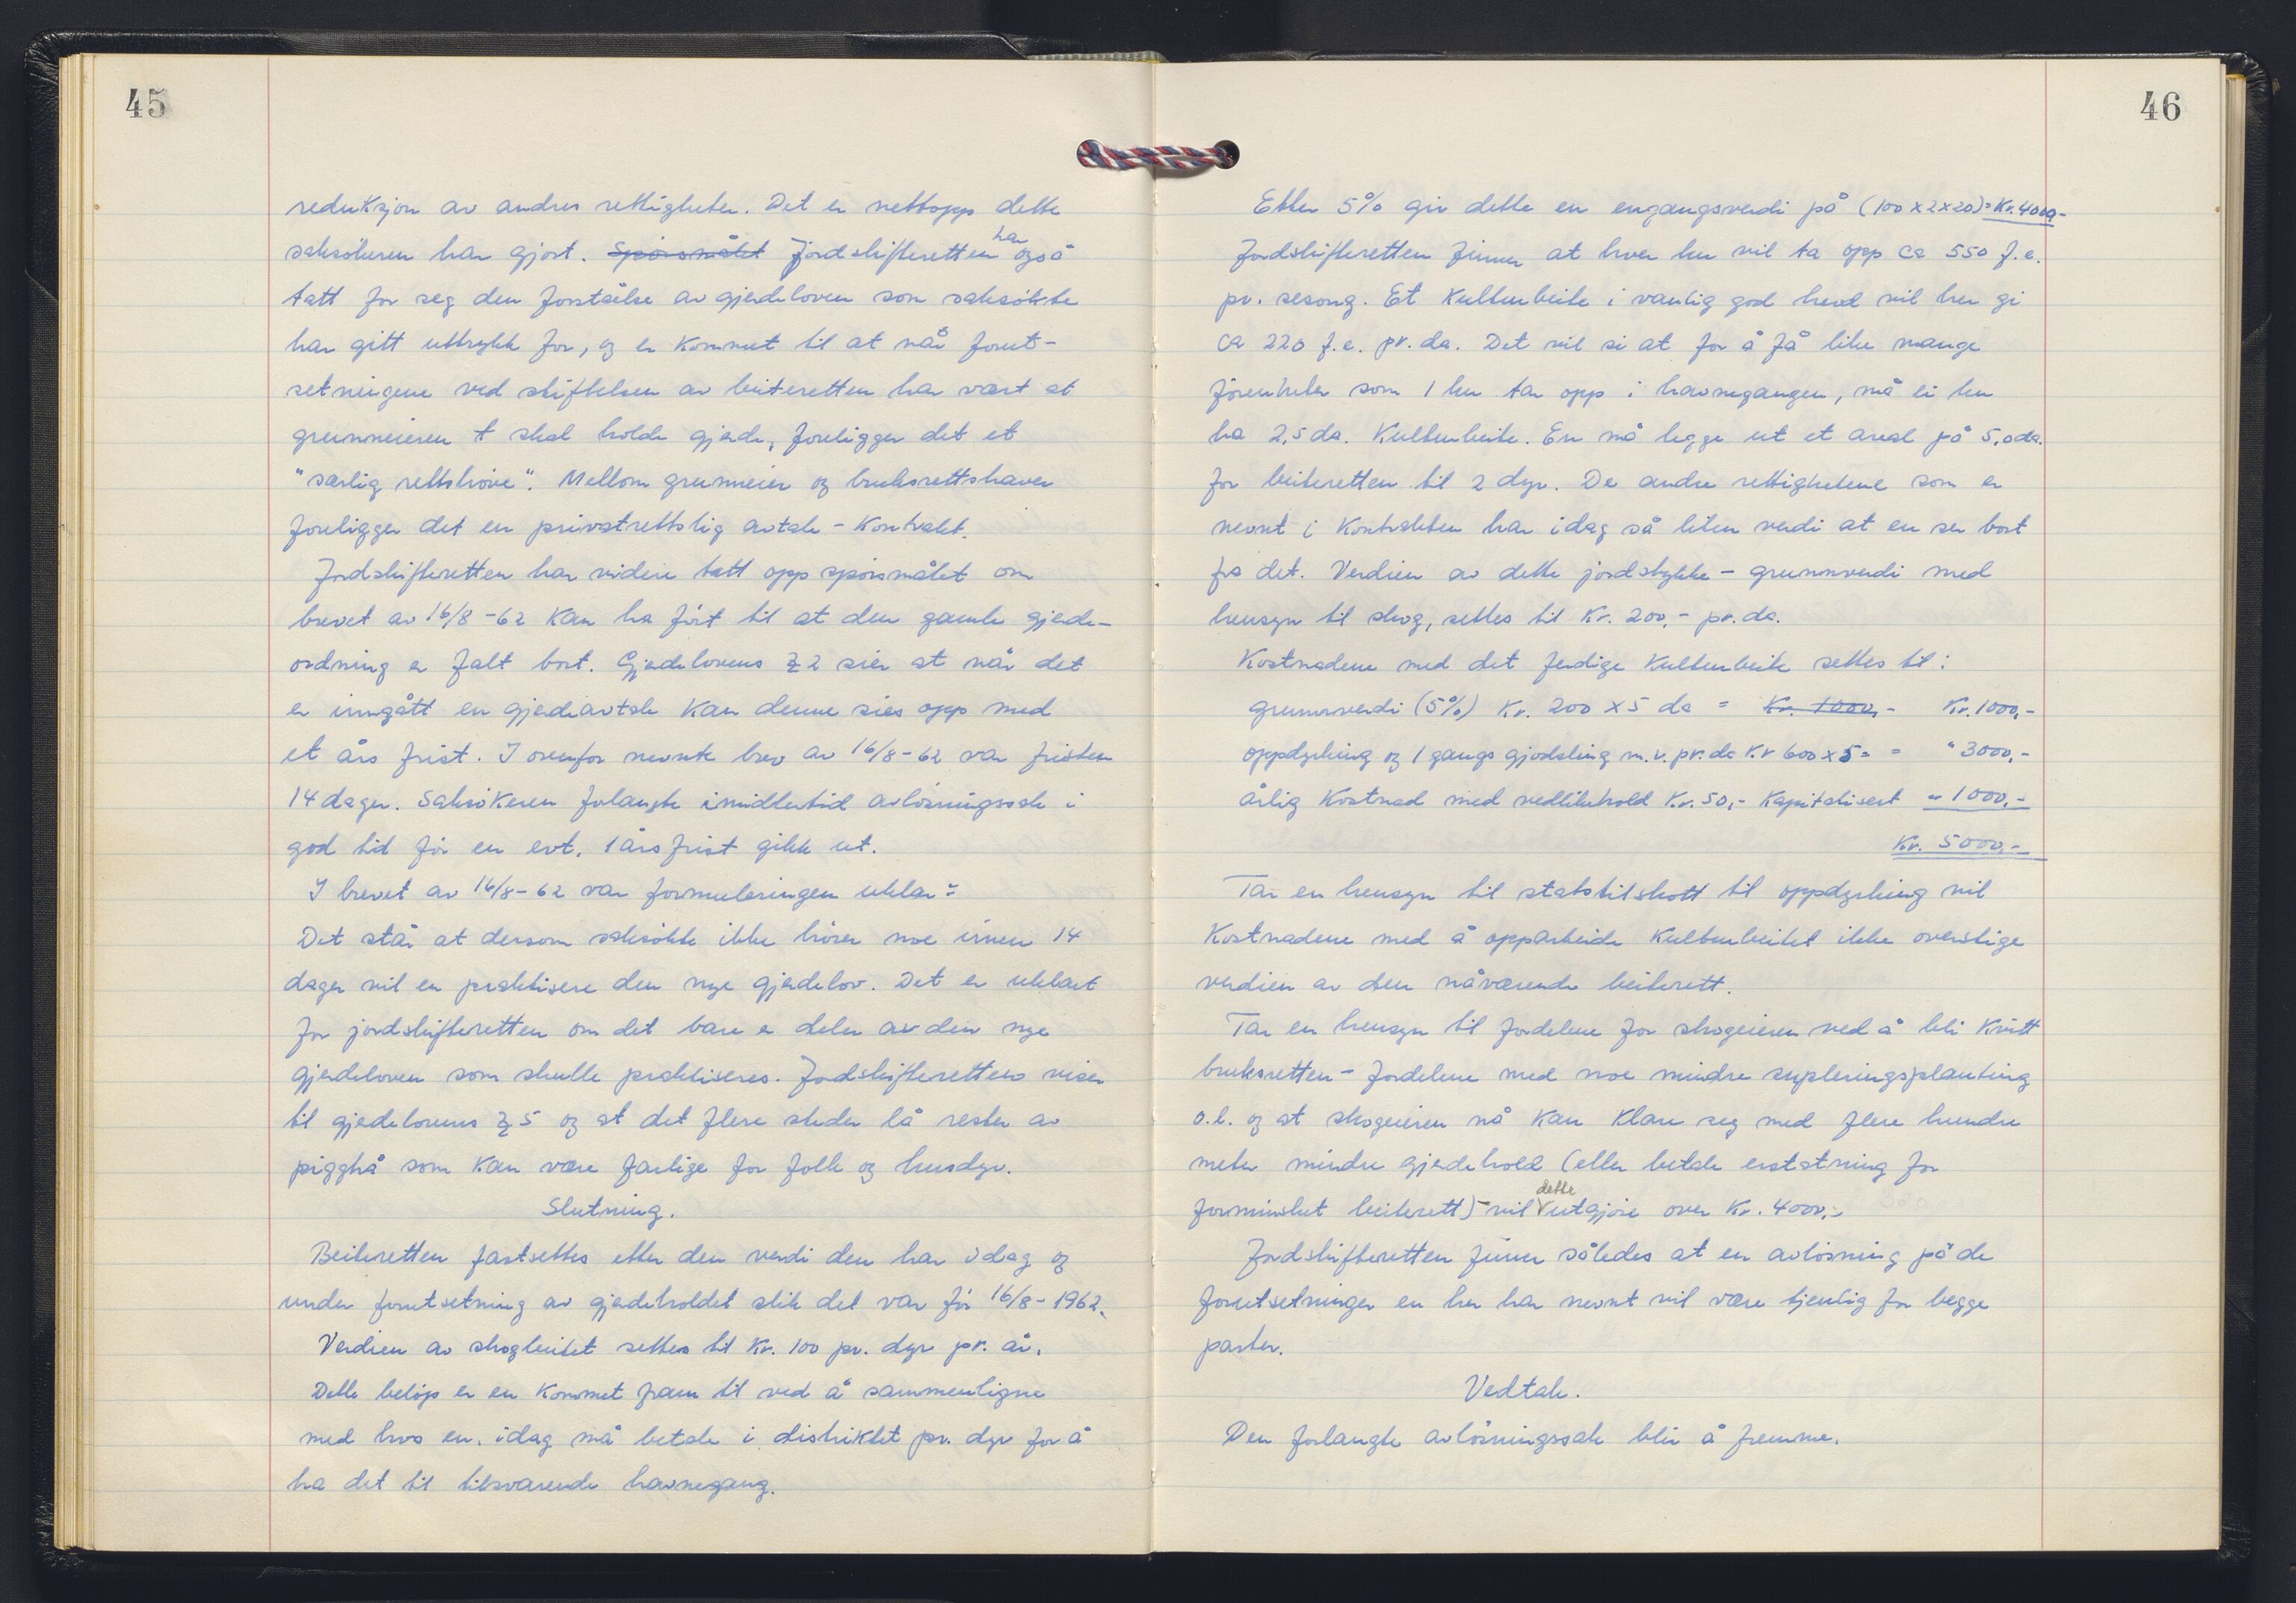 45
reduksjon av andres rettigheter. Det er nettopp dette
saksökeren har gjort. Spörsmålet Jordskifteretten har også
tatt for seg den forståelse av gjerdeloven som saksökte
har gitt uttrykk for, og er kommet til at når forut-
setningene ved stiftelsen av beiteretten har vært at
grunneieren t skal holde gjerde, foreligger det et
"særlig rettshöve". Mellom grunneier og bruksrettshaver
foreligger det en privatrettslig avtale - kontrakt.
Jordskifteretten har videre tatt opp spörsmålet om
brevet av 16/8-62 kan ha fört til at den gamle gjerde-
ordning er falt bort. Gjerdelovens § 2 sier at når det
er inngått en gjerdeavtale kan denne sies opp med
et års frist. I ovenfor nevnte brev av 16/8-62 var fristen
14 dager. Saksökeren forlangte imidlertid avlösningssak i
god tid för en evt. 1 års frist gikk ut.
I brevet av 16/8-62 var formuleringen uklar:
Det står at dersom saksökte ikke hörer noe innen 14
dager vil en praktisere den nye gjerdelov. Det er uklart
for jordskifteretten om det bare er deler av den nye
gjerdeloven som skulle praktiseres. Jordskifteretten viser
til gjerdelovens § 5 og at det flere steder lå rester av
piggtrå som kan være farlige for folk og husdyr.
Slutning.
Beiteretten fastsettes etter den verdi den har idag og
under forutsetning av gjerdeholdet slik det var för 16/8-1962.
Verdien av skogbeitet settes til kr. 100 pr. dyr pr. år.
Dette belöp er en kommet fram til ved å sammenligne
med hva en idag må betale i distriktet pr. dyr for å
ha det til tilsvarende havnegang.
46
Etter 5% gir dette en engangsverdi på (100x2x20)=Kr.4000-
Jordskifteretten finner at hver ku vil ta opp ca 550 f.e.
pr. sesong. Et kulturbeite i vanlig god hevd vil her gi
ca 220 f.e. pr. da. Det vil si at for å få like mange
fôrenheter som 1 ku tar opp i havnegangen, må ei ku
ha 2,5 da. Kulturbeite. En må legge ut et areal på 5,0 da.
for beiteretten til 2 dyr. De andre rettighetene som er
nevnt i kontrakten har idag så liten verdi at en ser bort
fra det. Verdien av dette jordstykke - grunnverdi med
hensyn til skog, settes til kr. 200,- pr. da.
Kostnadene med det ferdige kulturbeite settes til:
grunnverdi (5%) kr. 200 x 5 da = Kr. 1000,- Kr.1000,-
oppdyrking og 1 gangs gjödsling m.v. pr. da kr 600 x 5 = = " 3000,-
årlig kostnad med vedlikehold kr. 50,- kapitalisert " 1000,-
Kr. 5000.-
Tar en hensyn til statstilskott til oppdyrking vil
kostnadene med å opparbeide kulturbeitet ikke overstige
verdien av den nåværende beiterett.
Tar en hensyn til fordelene for skogeieren ved å bli kvitt
bruksretten - fordelene med noe mindre supleringsplanting
o.l. og at skogeieren nå kan klare seg med flere hundre
meter mindre gjerdehold (eller betale erstatning for
forminsket beiterett) - vil dette utgjöre over kr. 4000,-
Jordskifteretten finner således at en avlösning på de
forutsetninger en her har nevnt vil være tjenlig for begge
parter.
Vedtak.
Den forlangte avlösningssak blir å fremme.